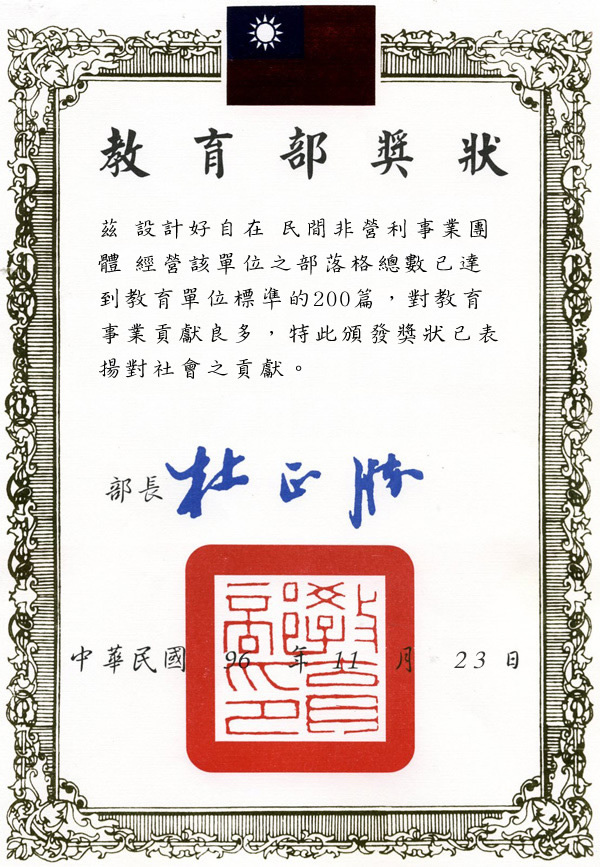 教育部獎狀
茲 設計好自在 民間非營利事業團
體 經營該單位之部落格總數已達
到教育單位標準的200篇，對教育
事業貢獻良多，特此頒發獎狀已表
揚對社會之貢獻。
部長 杜正勝
中華民國 96 年 11 月 23 日